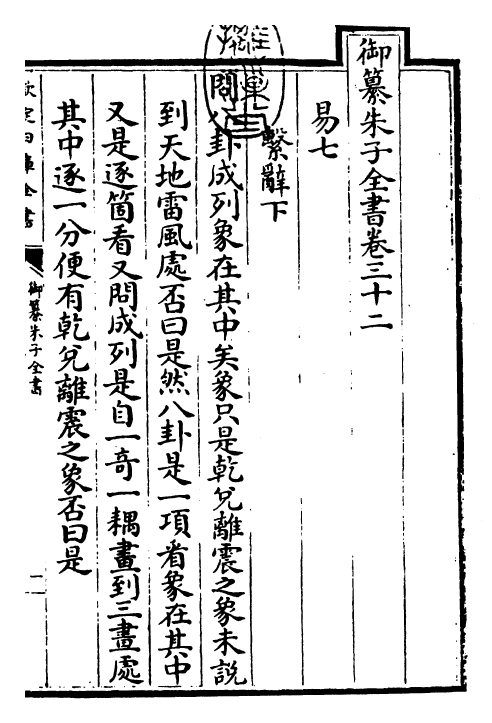 御纂朱子全書卷三十二
易七
繫辭下
問八卦成列象在其中矣象只是乾兌離震之象未説
到天地雷風處否曰是然八卦是一項看象在其中
又是逐箇看又問成列是自一奇一耦畫到三畫處
其中逐一分便有乾兌離震之象否曰是
欽定四庫全書
御纂朱子全書